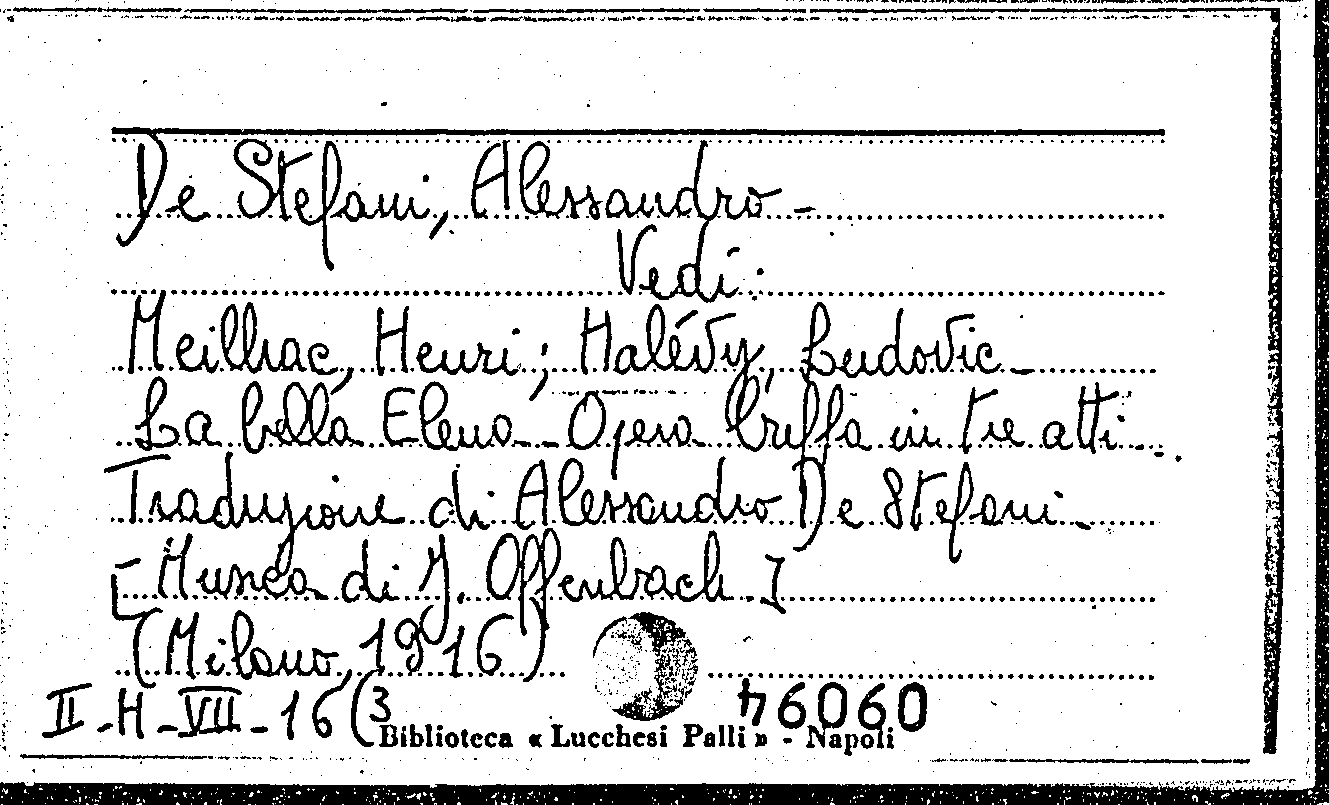 De Stefani, Alessandro -
Vedi:
Meilhac, Henri; Halévy, Ludovic -
La bella Elena - Opera buffa in tre atti -
Traduzione di Alessandro De Stefani -
[Musica di J. Offenbach.]
(Milano, 1916)
II-H-VII-16(3
46060
Biblioteca « Lucchesi Palli » - Napoli